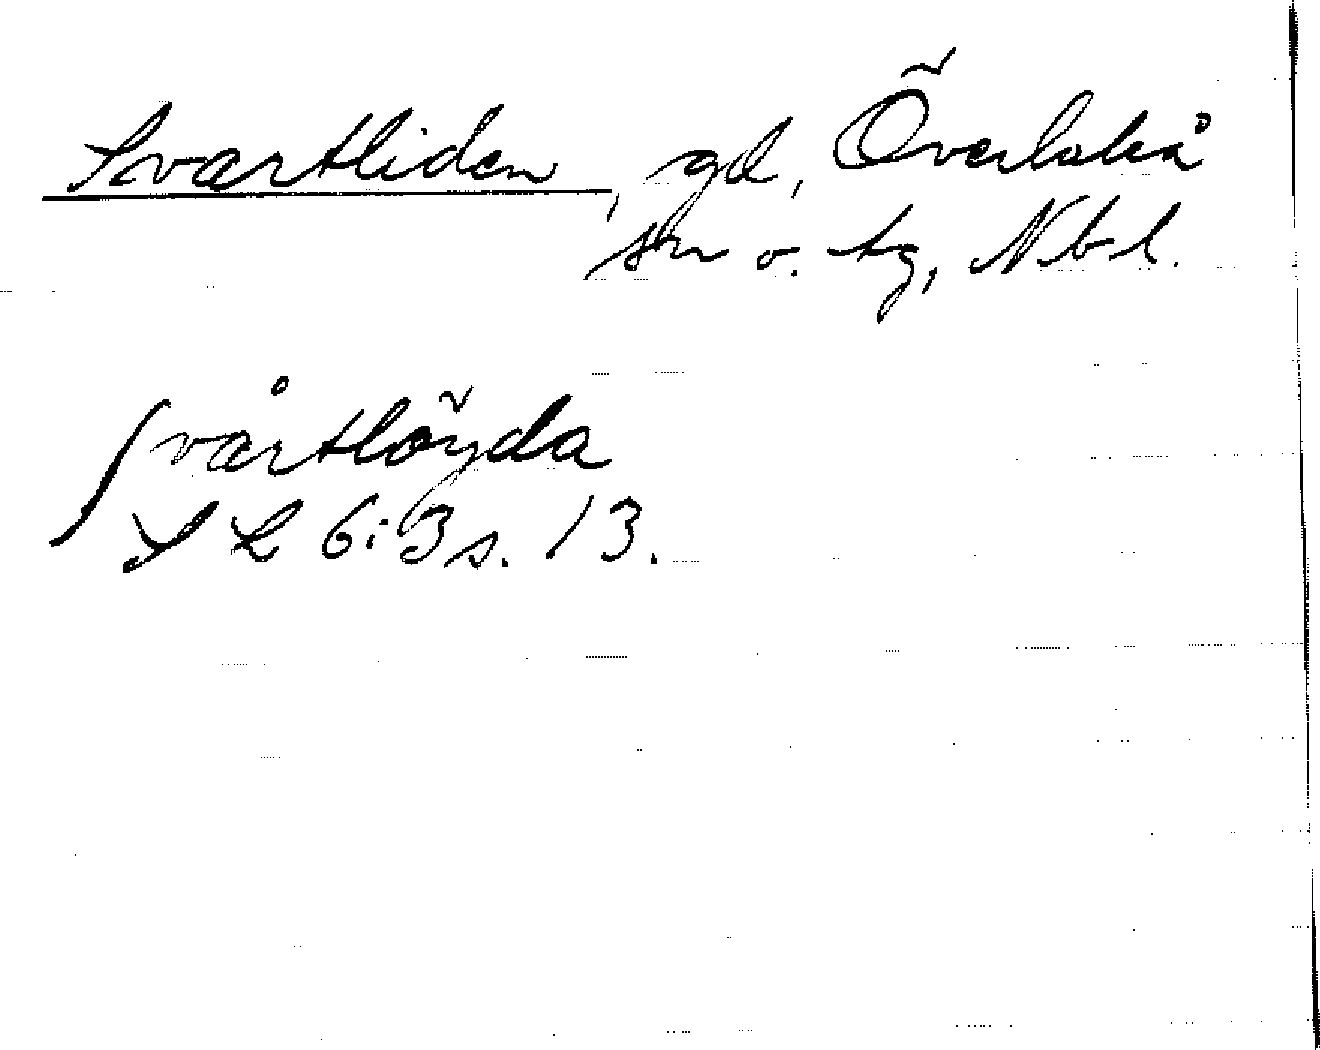 Svartliden, gd, Överluleå
sn o. tg, Nbl.
Svårtlöyda
SL 6:3 s. 13.